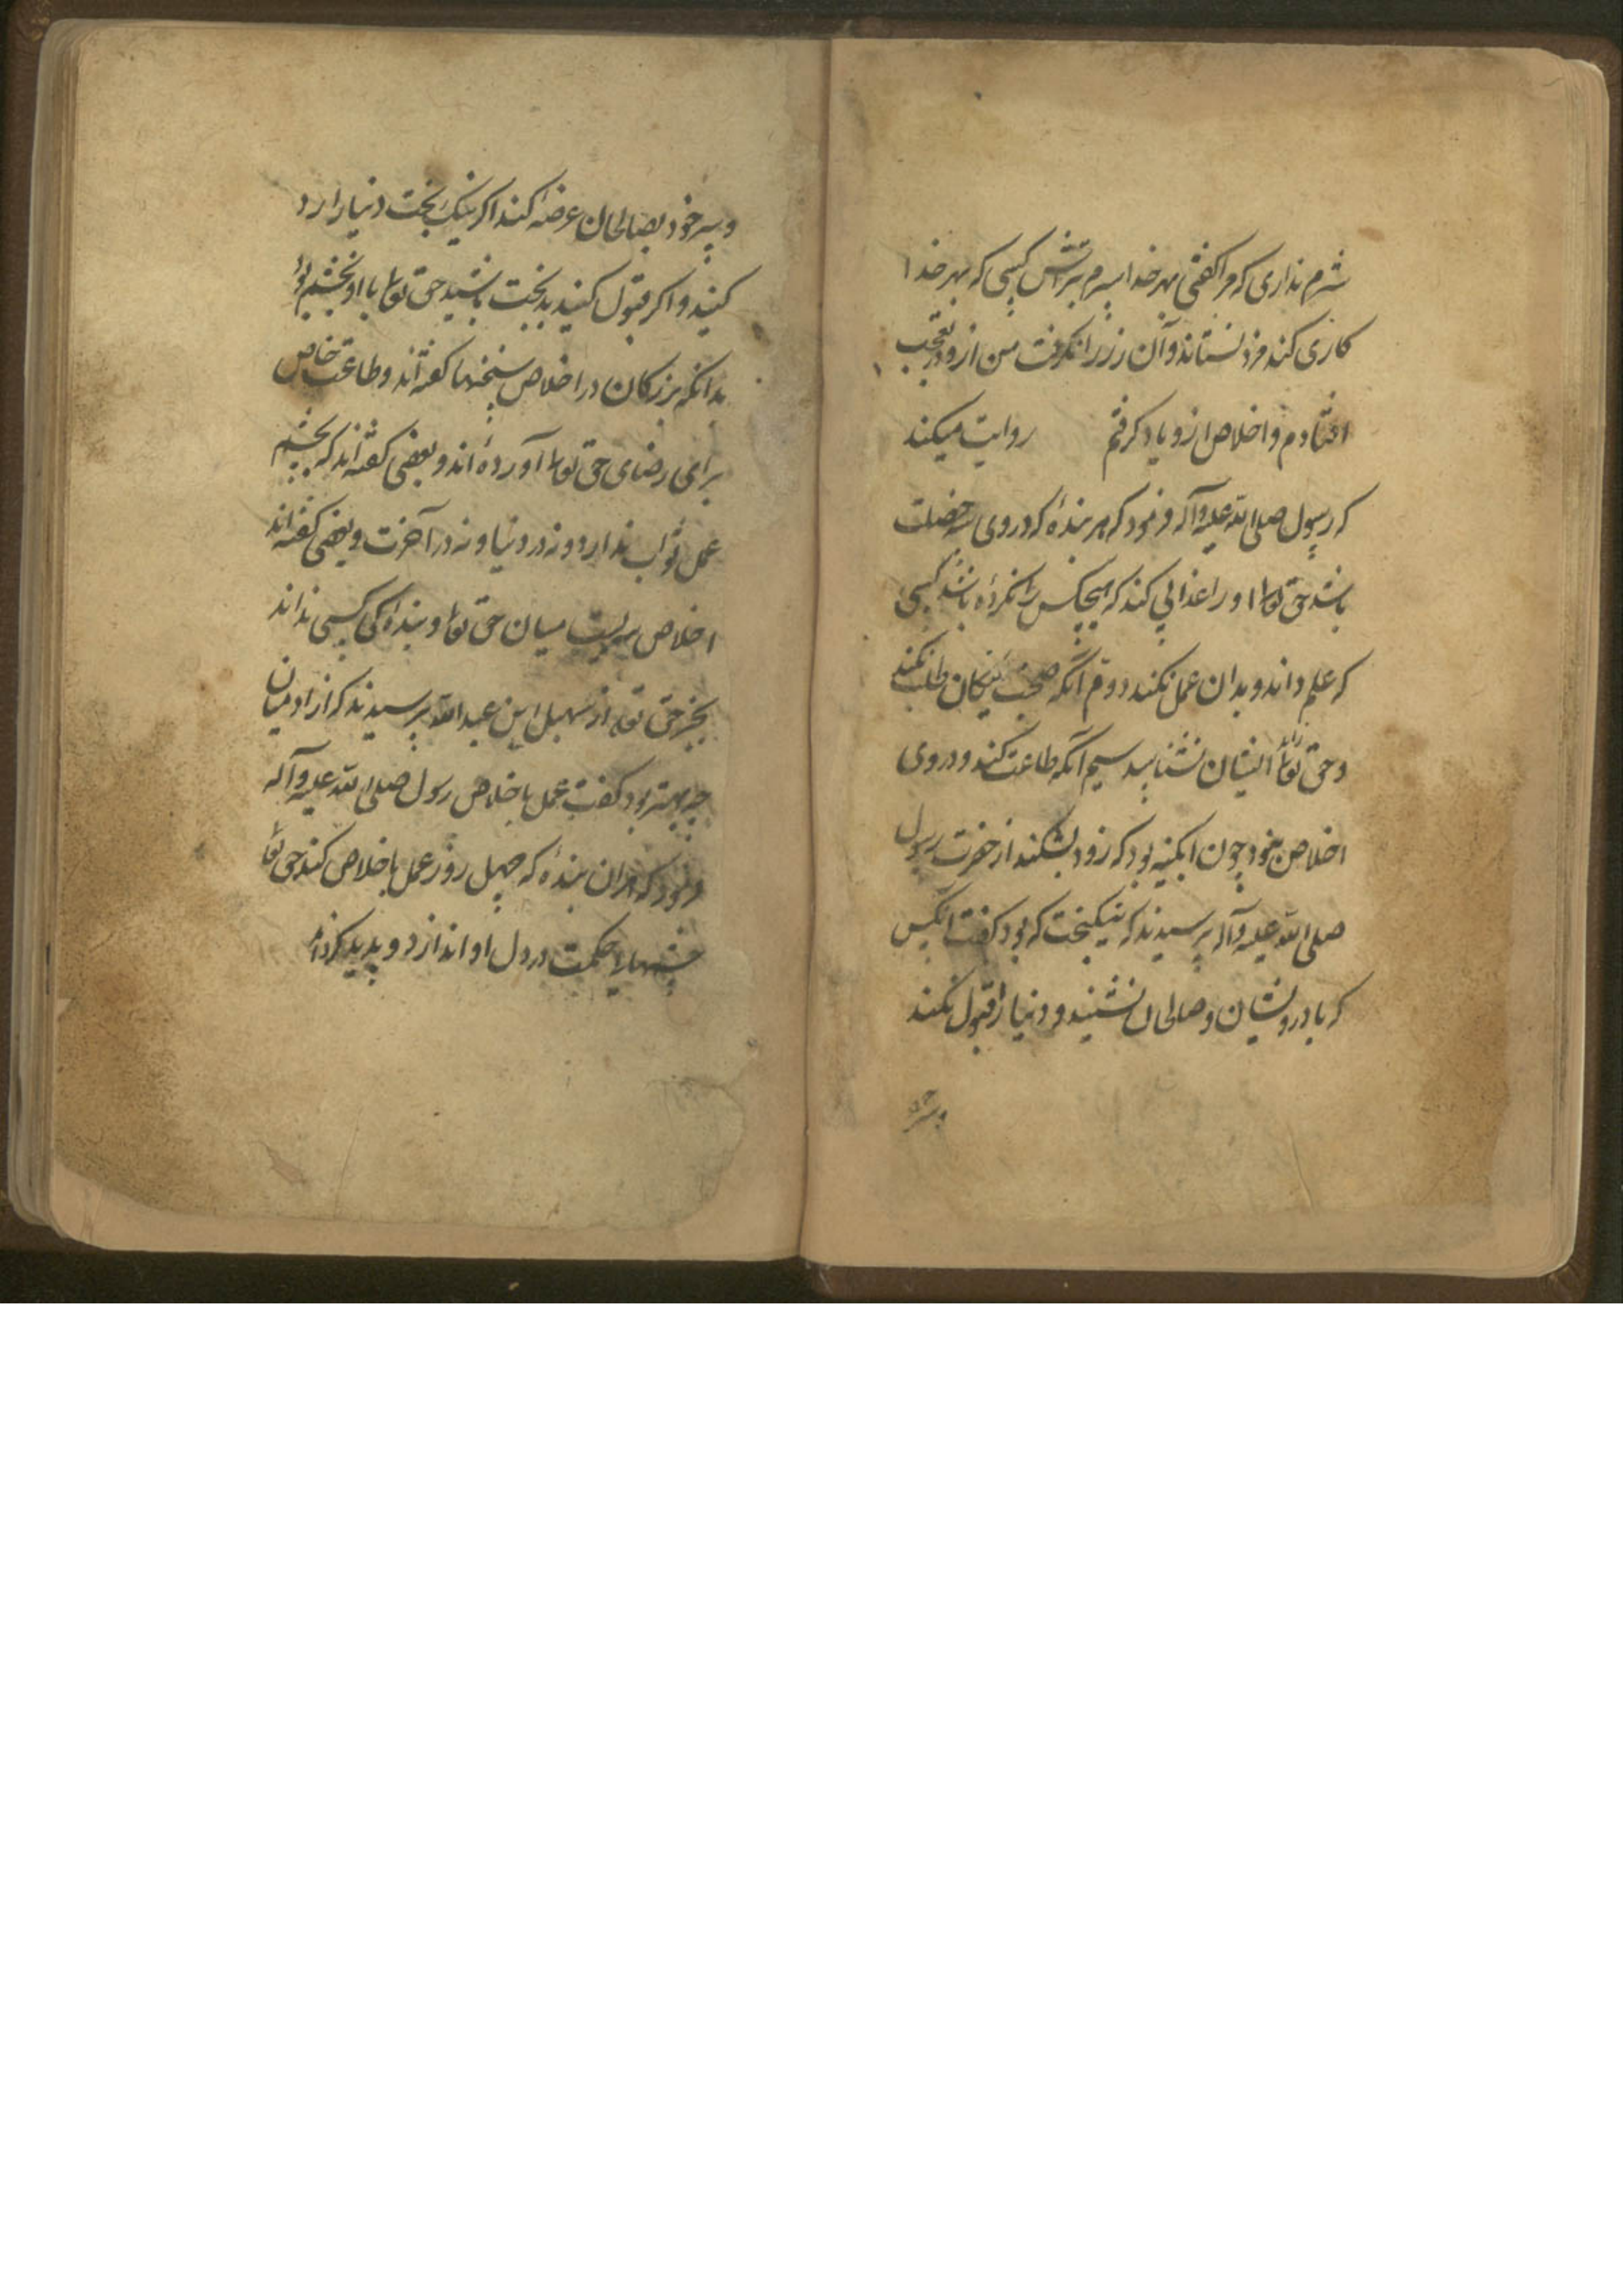 شرم نداری که مرا گفتی بهر خدا سرم بتراش کسی که بهر خدا
کاری کند مزد نستاند و آن زر را نگرفت من ازو در تعجب
افتادم و اخلاص ازو یاد گرفتم روایت میکند
که رسول صلی الله علیه وآله فرمود که هر بندهٔ که در وی سه خصلت
باشد حق تعالی او را عذابی کند که هیچکس را نکرده باشد کسی
که علم داند و بدان عمل نکند دوم آنکه صحبت نیکان طلب نکند
و حق تعالی را ایشان نشناسد سیم آنکه طاعت کند و در وی
اخلاص نبود چون آبگینه بود که زود بشکند از حضرت رسول
صلی الله علیه وآله پرسیدند که نیکبخت که بود گفت آنکس
که با درویشان و صالحان نشیند و دنیا را قبول نکند
و سر خود بصالحان عرضه کند اگر نیک بخت دنیا را رد
کنید و اگر قبول کنید بدبخت باشید حق تعالی با او بخشم بود
بدانکه بزرگان در اخلاص سخنها گفته‌اند و طاعت خاص
برای رضای حق تعالی آورده‌اند و بعضی گفته‌اند که بچشم
عمل ثواب ندارد و نه در دنیا و نه در آخرت و بعضی گفته‌اند
اخلاص سریست میان حق تعالی و بندهٔ کی کسی نداند
بجز حق تعالی از سهیل ابن عبدالله پرسیدند که از آدمیان
چه بهتر بود گفت عمل باخلاص رسول صلی الله علیه وآله
فرمود که هر آن بندهٔ که چهل روز عمل باخلاص کند حق تعا
چشمهاء حکمت در دل او اندازد و پدید کرداند